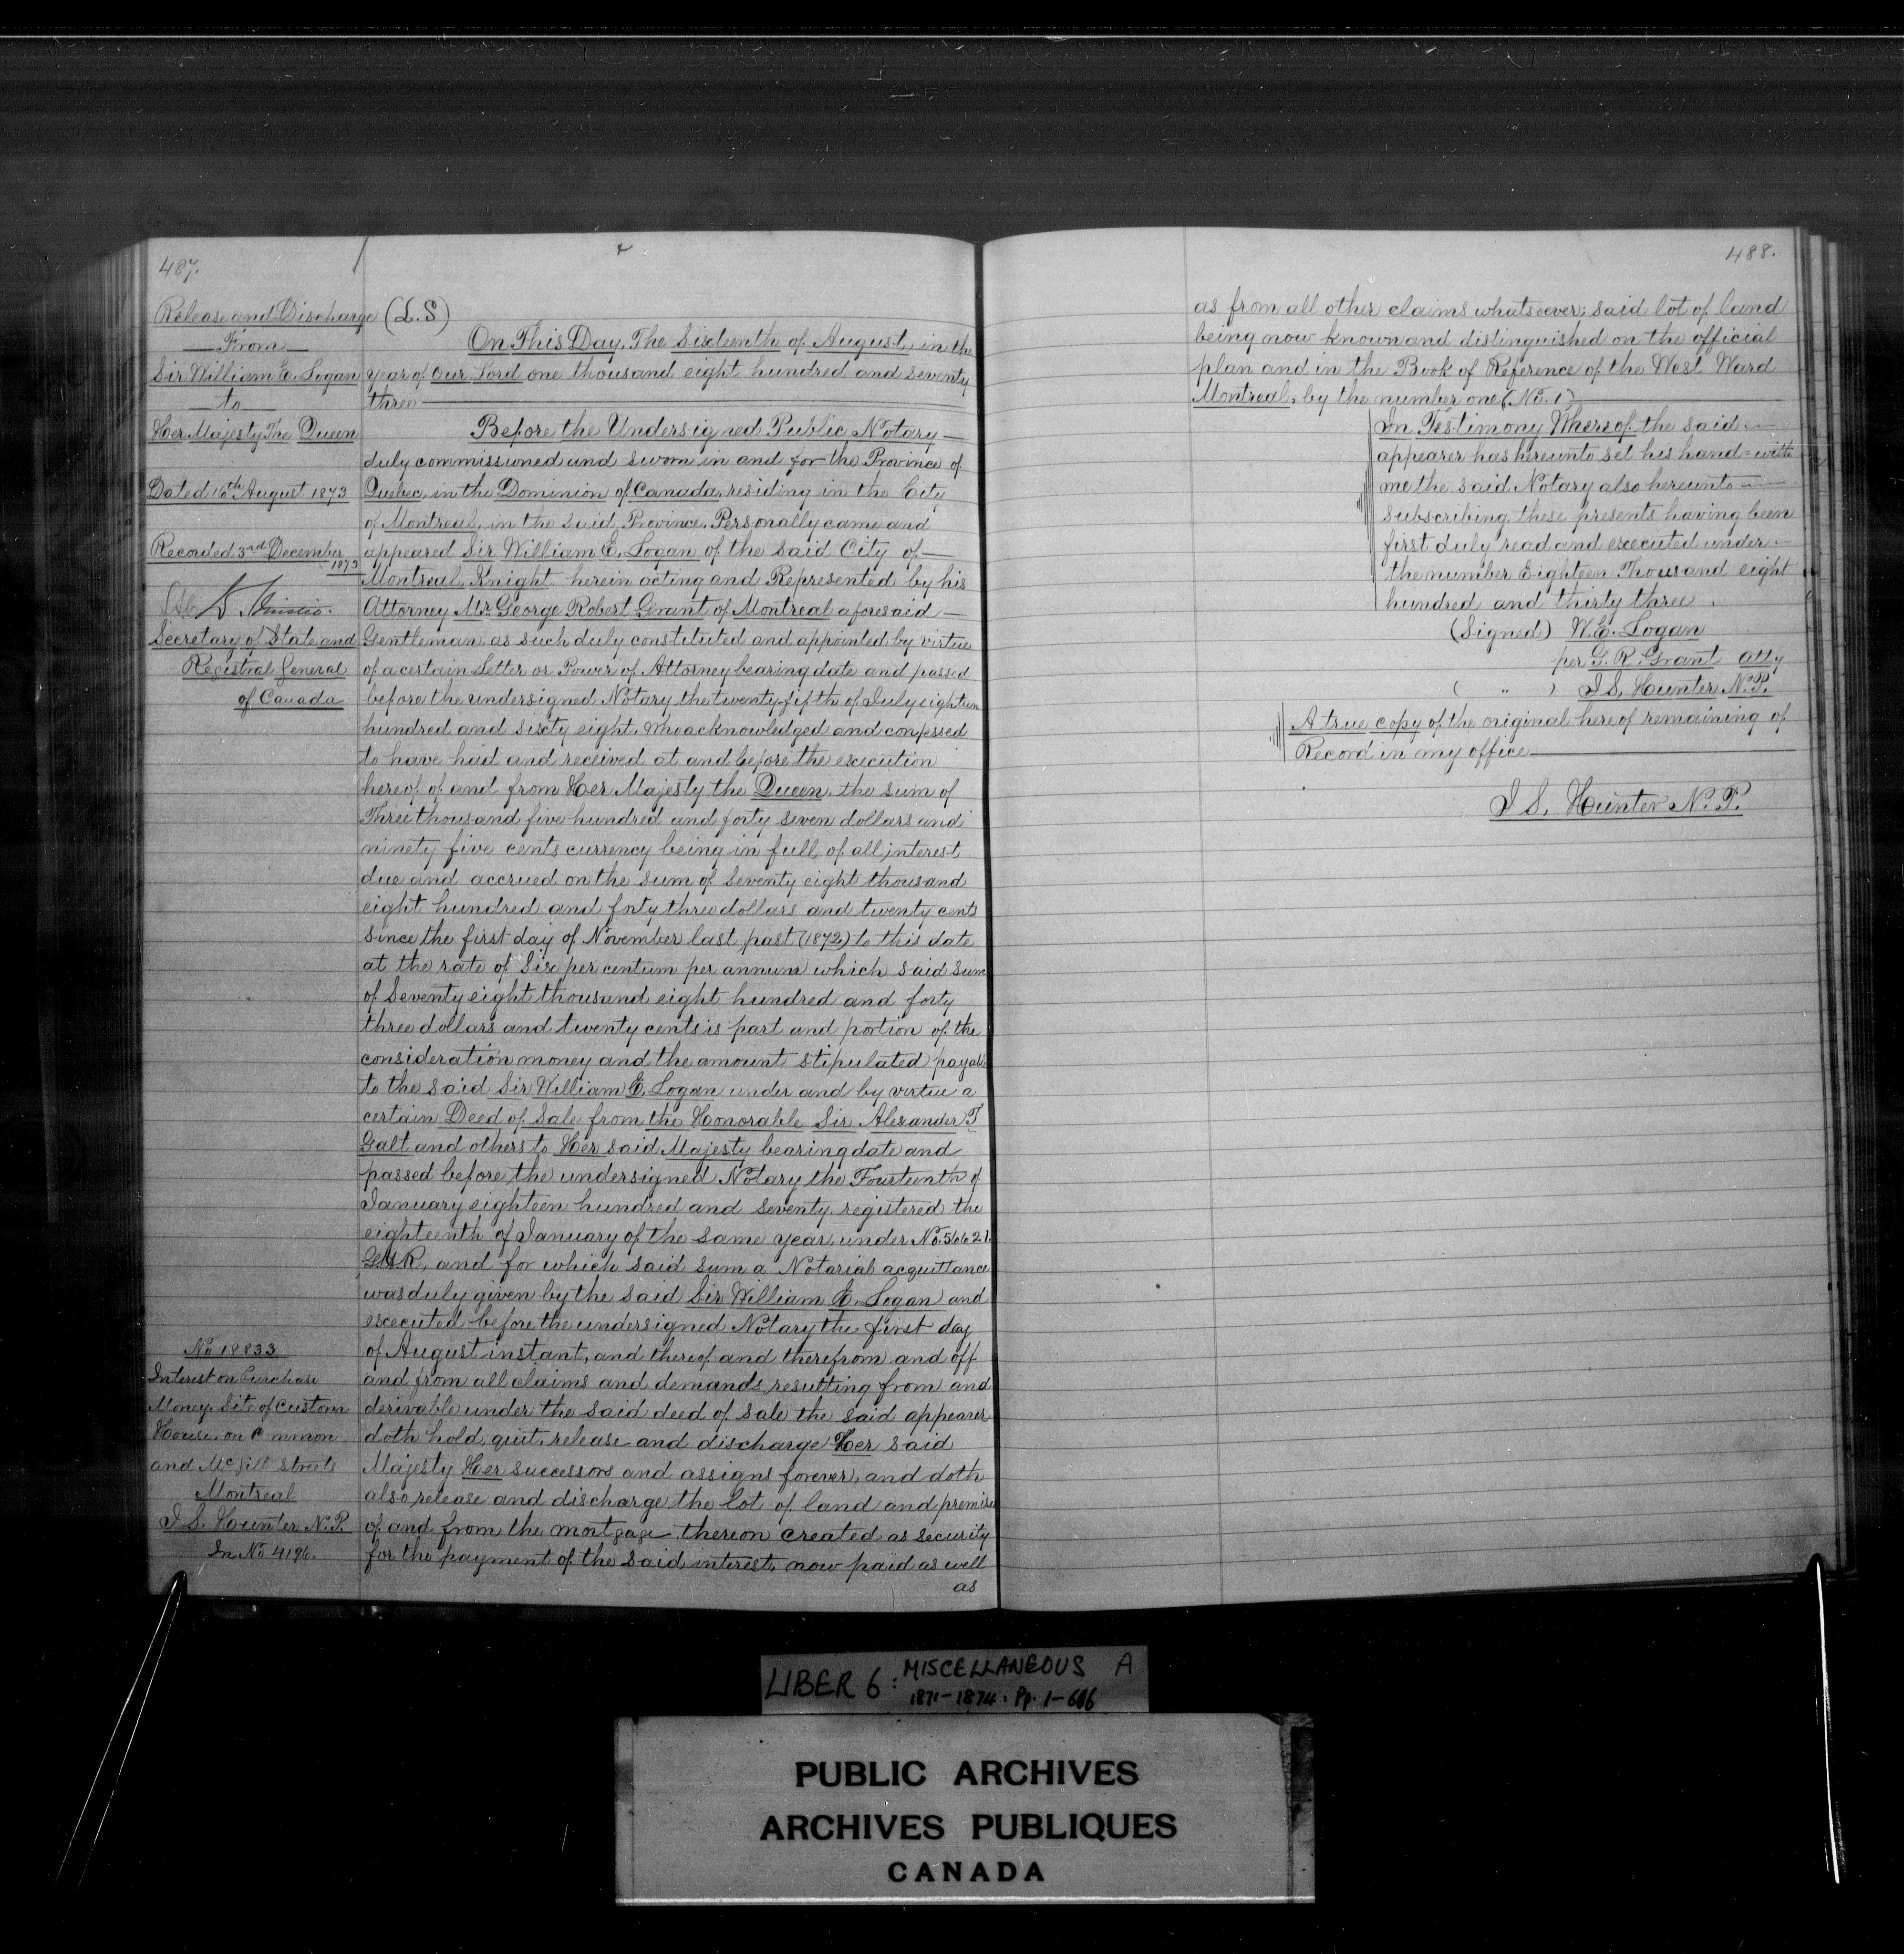 487.
Release and Discharge (L.S)
From
Sir William E. Logan
to
Her Majesty The Queen
Dated 16th August 1873
Recorded 3rd December
1873
Secretary of State and
Registral General
of Canada
No 18833
Interest on Purchase
Money. Site of Custom
House, on C mmon
and McGill Streets
Montreal
J S. Hunter N.P.
In No 4196.
On This Day, The Sixteenth of August, in the
year of Our Lord one thousand eight hundred and seventy
three
Before the Undersigned Public Notary
duly commissioned and sworn in and for the Province of
Quebec, in the Dominion of Canada, residing in the City
of Montreal, in the said Province. Personally came and
appeared Sir William E. Logan of the said City of
Montreal, Knight herein acting and Represented by his
Attorney Mr. George Robert Grant of Montreal aforesaid
Gentleman as such duly constituted and appointed by virtue
of a certain Letter or Power of Attorney bearing date and passed
before the undersigned Notary the twenty-fifth of July eighteen
hundred and sixty eight, who acknowledged and confessed
to have had and received at and before the execution
hereof of and from Her Majesty the Queen, the sum of
Three thousand five hundred and forty seven dollars and
ninety five cents currency being in full of all interest
due and accrued on the sum of Seventy eight thousand
eight hundred and forty three dollars and twenty cents
since the first day of November last past (1872) to this date
at the rate of Six per centum per annum which said sum
of Seventy eight thousand eight hundred and forty
three dollars and twenty cents is part and portion of the
consideration money and the amount stipulated payab
to the said Sir William E. Logan under and by virtue a
certain Deed of Sale from the Honorable Sir Alexander T
Galt and others to Her said Majesty bearing date and
passed before the undersigned Notary the Fourteenth of
January eighteen hundred and seventy, registered the
eighteenth of January of the same year under No. 56621.
and for which said sum a Notarial acquittance
was duly given by the said Sir William E. Logan and
executed before the undersigned Notary the first day
of August instant, and thereof and therefrom and off
and from all claims and demands resulting from and
derivable under the said deed of Sale the said appearer
doth hold, quit, release and discharge Her said
Majesty Her successors and assigns forever, and doth
also release and discharge the lot of land and premises
of and from the mortgage thereon created as security
for the payment of the said interest, now paid as well
as
488.
as from all other claims whatsoever; said lot of land
being now known and distinguished on the official
plan and in the Book of Reference of the West Ward
Montreal, by the number one (No. 1)
In Testimony Whereof the said
appearer has hereunto set his hand with
me the said Notary also hereunto
subscribing, these presents having been
first duly read and executed under
the number Eighteen Thousand eight
hundred and thirty three.
(Signed) W.E. Logan
per G. R. Grant atty
( " ) J S. Hunter N.P.
A true copy of the original hereof remaining of
Record in my office
J S. Hunter N.P.
LIBER 6: MISCELLANEOUS A
1871-1874. Pp. 1-606
PUBLIC ARCHIVES
ARCHIVES PUBLIQUES
CANADA